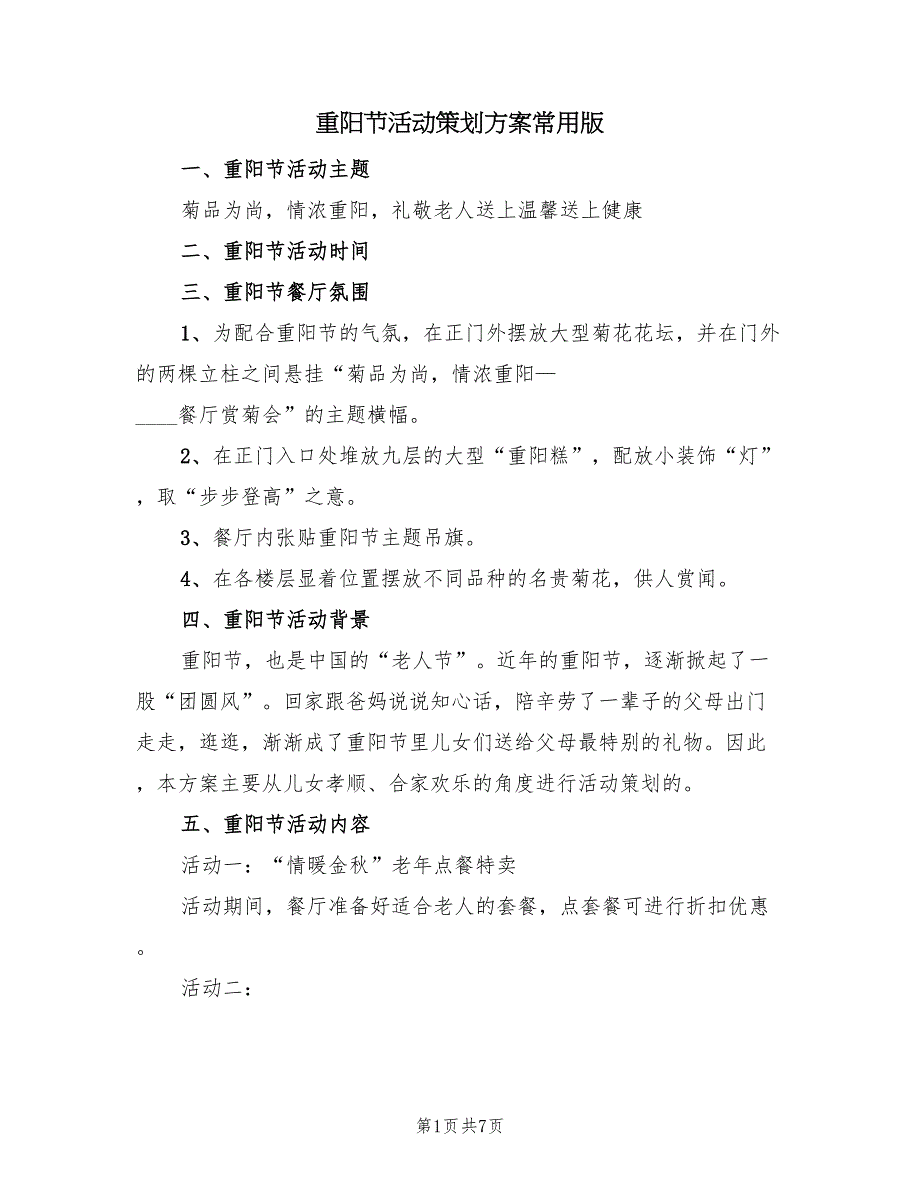 重阳节活动策划方案常用版
一、重阳节活动主题
菊品为尚，情浓重阳，礼敬老人送上温馨送上健康
二、重阳节活动时间
三、重阳节餐厅氛围
1、为配合重阳节的气氛，在正门外摆放大型菊花花坛，并在门外
的两棵立柱之间悬挂“菊品为尚，情浓重阳—
____餐厅赏菊会”的主题横幅。
2、在正门入口处堆放九层的大型“重阳糕”，配放小装饰“灯”
，取“步步登高”之意。
3、餐厅内张贴重阳节主题吊旗。
4、在各楼层显着位置摆放不同品种的名贵菊花，供人赏闻。
四、重阳节活动背景
重阳节，也是中国的“老人节”。近年的重阳节，逐渐掀起了一
股“团圆风”。回家跟爸妈说说知心话，陪辛劳了一辈子的父母出门
走走，逛逛，渐渐成了重阳节里儿女们送给父母最特别的礼物。因此
，本方案主要从儿女孝顺、合家欢乐的角度进行活动策划的。
五、重阳节活动内容
活动一：“情暖金秋”老年点餐特卖
活动期间，餐厅准备好适合老人的套餐，点套餐可进行折扣优惠
。
活动二：
第1页 共7页